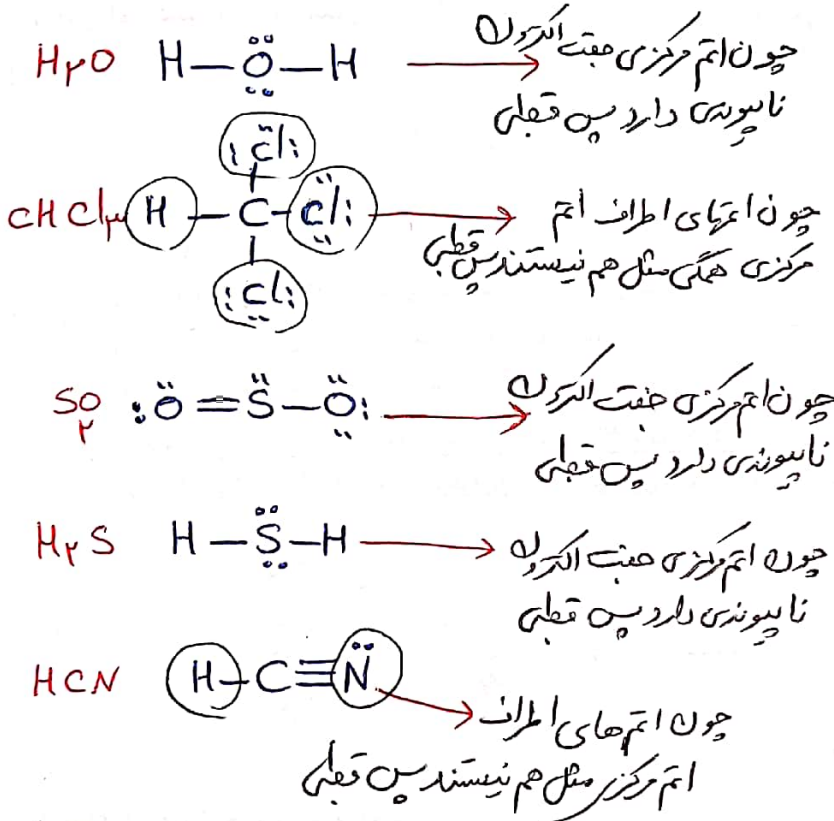 H۲O H—O—H چون اتم مرکزی جفت الکترون
ناپیوندی دارد پس قطبی
Cl
CHCl۳ H—C—Cl چون اتمهای اطراف اتم
Cl مرکزی همگی مثل هم نیستند پس قطبی
SO۲ O=S—O چون اتم مرکزی جفت الکترون
ناپیوندی دارد پس قطبی
H۲S H—S—H چون اتم مرکزی جفت الکترون
ناپیوندی دارد پس قطبی
HCN H—C≡N چون اتم های اطراف
اتم مرکزی مثل هم نیستند پس قطبی